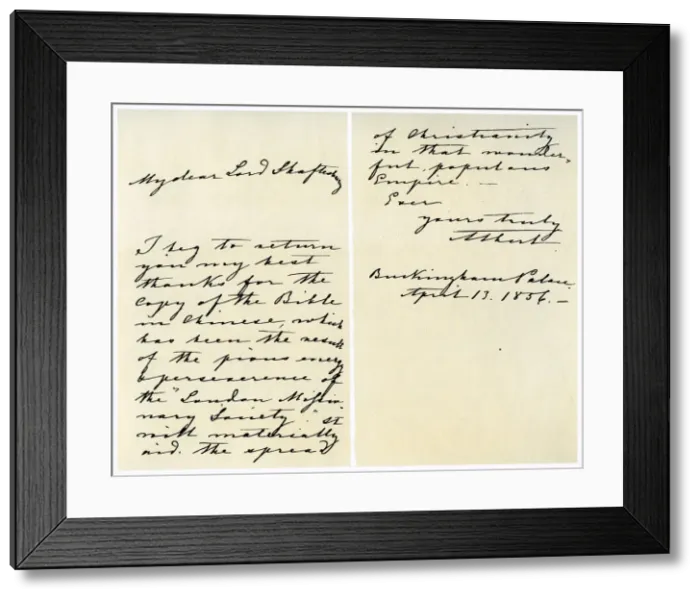 My dear Lord Shaftesbury
I beg to return
you my best
thanks for the
copy of the Bible
in Chinese, which
has been the result
of the pious energy
& perseverence of
the "London Missio
nary Society". It
will materially
aid. the spread
of Christianity
in that wonder,
ful, populous
Empire. —
Ever
yours truly
Albert.
Buckingham Palace.
April 13. 1856. —